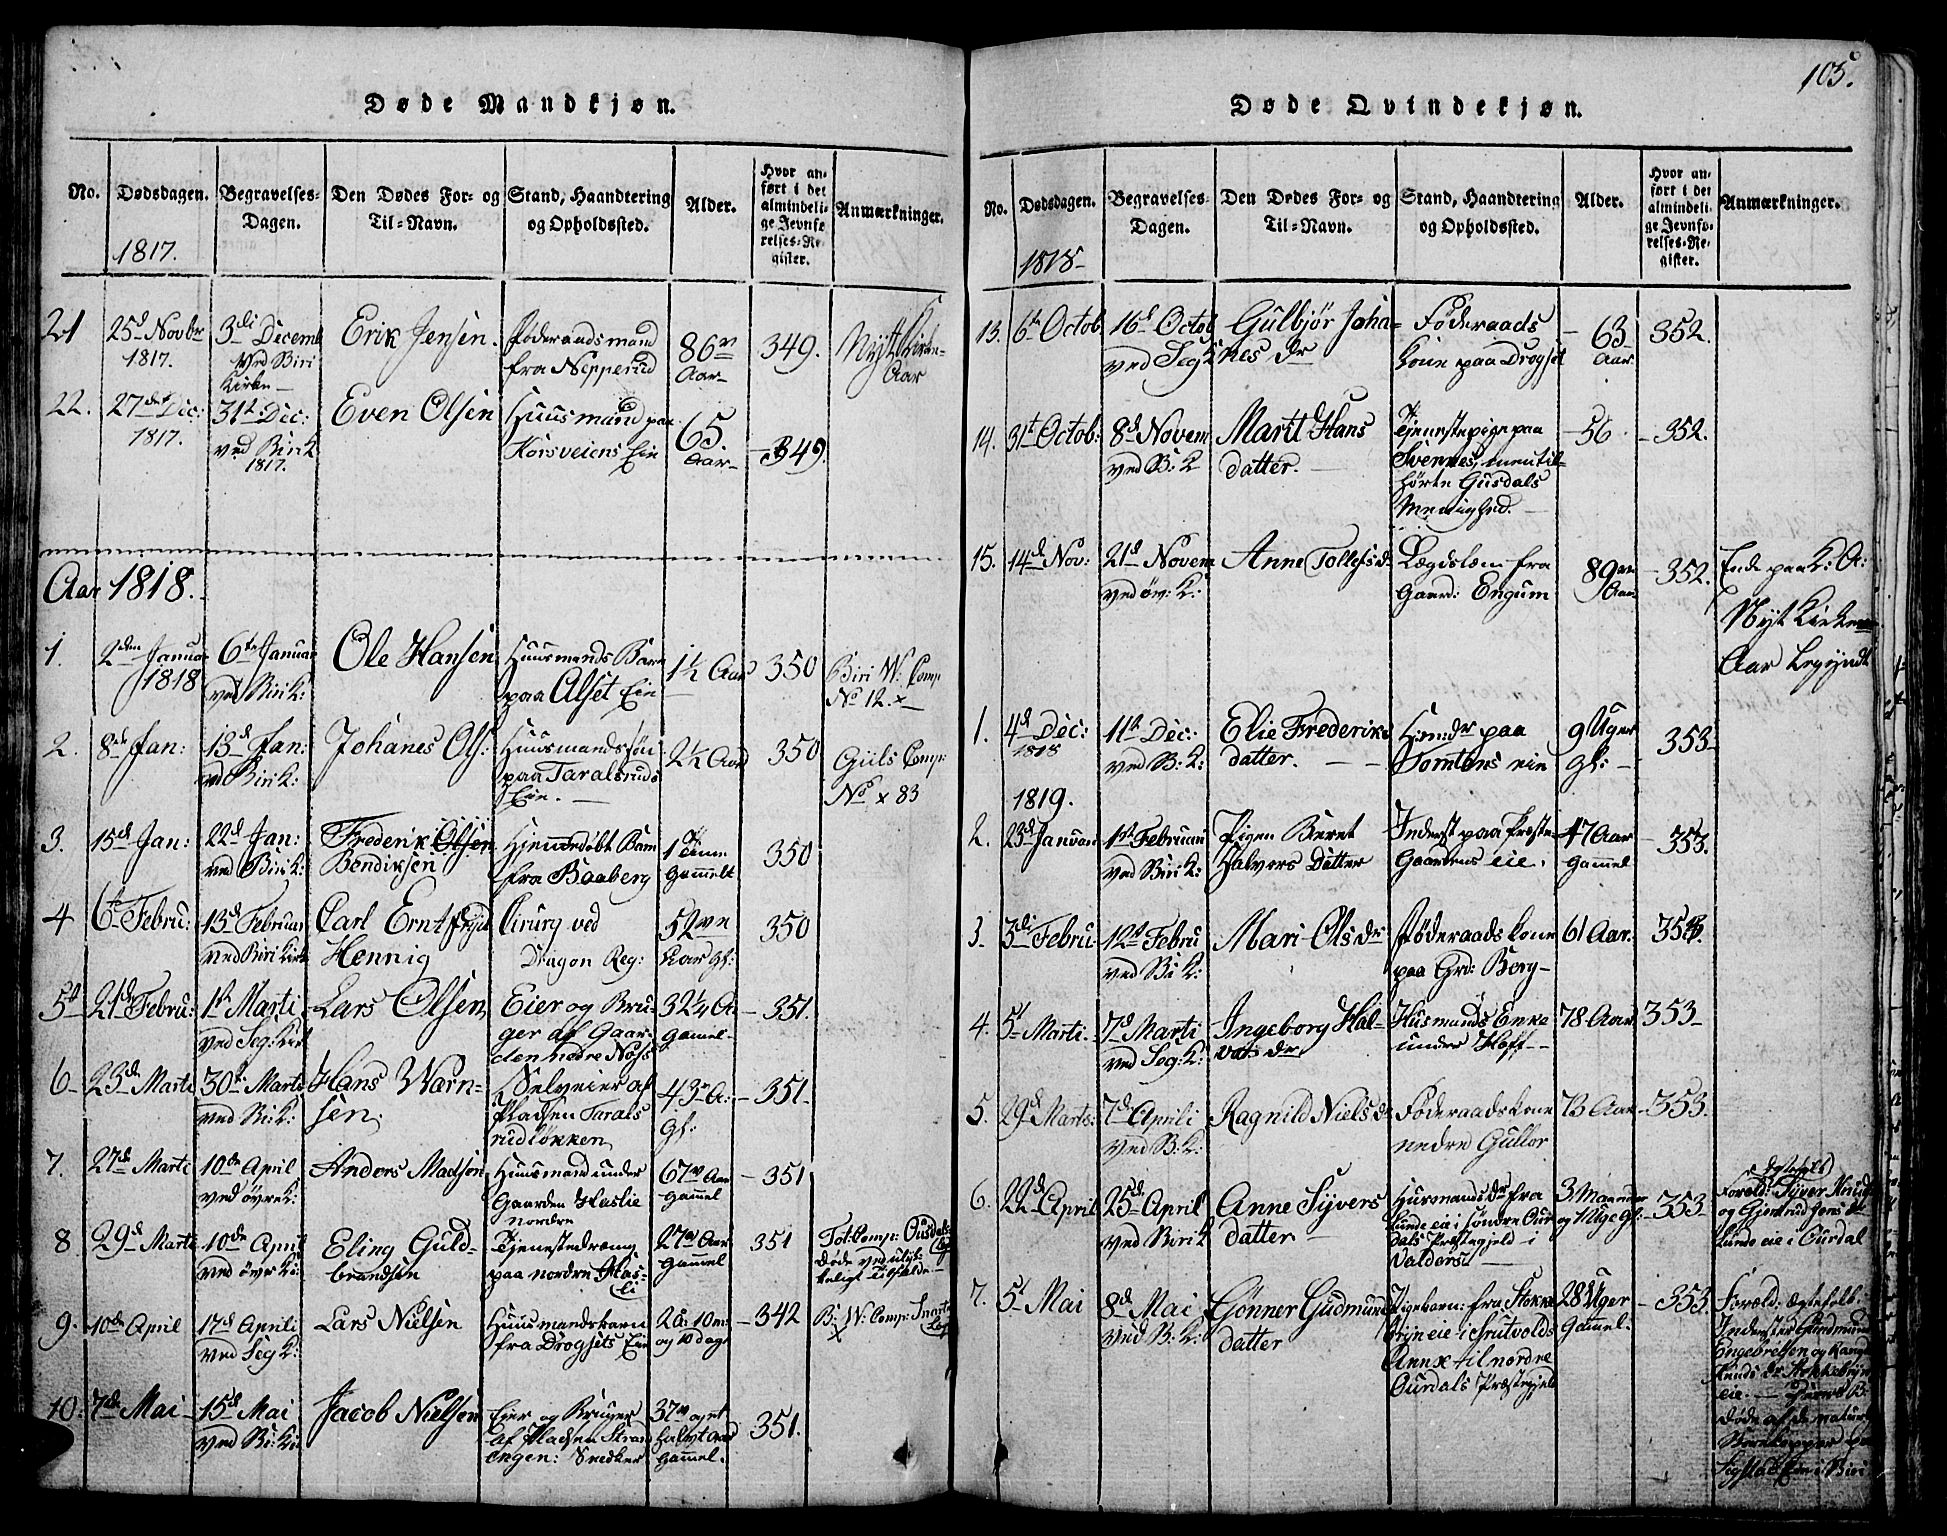 105.
Døde Mandkjøn.
No.
Dødsdagen.
1817.
Begravelses-
Dagen.
Den Dødes For- og
Til-Navn.
Stand, Haandtering
og Opholdssted.
Alder.
Hvor an-
ført i det
almindeli-
ge Jevnfø-
relses-Re-
gister.
Anmærkninger.
21
25d Novbr
1817.
3di Decemb
ved Biri
Kirke
Erik Jensen.
Føderaadsmand
fra Nepperud
86
Aar
349.
Nytt Kirke-
Aar
22.
27de Dec:
1817.
31t Dec:
ved Biri K
1817.
Even Olsen
Huusmand paa
Korsveiens Eie
65
Aar
349.
Aar 1818.
1.
2den Janua
1818
6te Januar
ved Biri K:
Ole Hansen
Huusmands Barn
paa Alset Eie
1½ Aar
350
Biri W: Comp
No 12. x
2.
8de Jan:
13d Jan:
ved Biri K:
Johanes Ols:
Huusmandssøn
paa Taralsruds
Eie.
2½ Aar
350
Guls Comp:
No x 83
3.
15de Jan:
22d Jan:
ved Biri K:
Frederik Olsen
Bendiksen
Hjemmedøbt Barn
fra Baaberg
1 Time
gammelt
350
4
6te Febru:
13d Februar
ved Biri Kirk
Carl Ernt
Hennig
Cirurg ved
Dragon Reg:
52
Aar gl:
350
5
21de Febru:
1ste Marti
ved Seg: Kirk
Lars Olsen
Eier og Bru-
ger af Gaar-
den nedre Næss
32½ A
gamel
351.
6
23de Marti
30te Marti
ved Bi: K:
Hans Warn-
sen.
Selveier af
Pladsen Tarals
rudløkken
43 A:
gl:
351.
7.
27de Marti
10de April
ved øvre K:
Anders Madsen
Huusmand under
Gaarden Haslie
nordre
67 Aar
gammel
351
8
29de Marti
10de April
ved øvre Ki:
Eling Guld-
brandsen
Tjenestedreng
paa nordre Has-
li
27 Aar
gammel
351
døde ved ulyk-
keligt Tilfælde
9.
10de April
17de Aprili
ved Seg K:
Lars Nielsen
Huusmandsbarn
fra Drogsets Eie
2 A: 10 m:
og 10 dage
342
B: W: Comp:
10.
7de Mai
15de Mai
ved Bi: Ki:
Jacob Nielsen
Eier og Bruger
af Pladsen Strand
Engen: Snedker
37 og et
halvt Aar
gammel.
351.
Døde Qvindekjøn.
No.
Dødsdagen.
1818
Begravelses-
Dagen.
Den Dødes For- og
Til-Navn.
Stand, Haandtering
og Opholdssted.
Alder.
Hvor an-
ført i det
almindeli-
ge Jevnfø-
relses-Re-
gister.
Anmærkninger.
13.
6te Octob
16d Octob
ved Seg K
Gulbjør Joha-
nes dr
Føderaads
kone paa Drogset
63
Aar
352.
14.
31t Octob:
8d Novem
ved B: K
Marit Hans
datter.
Tjenestepige paa
Svennes, men til-
hørte Gusdals
Menighed.
56
352.
15.
14de Nov:
21d Novem
ved øv: K:
Anne Tollefs d
Lægdslem fra
Gaard: Engum
89
Aar
352.
Ende paa K: A:
Nyt Kirke-
Aar begyndt
1.
4d Dec:
1818
11te Dec:
ved B: K:
Elie Frederiks
datter.
Husmdr paa
Tomtens eie
9 Uger
gl:
353
1819.
2.
23d Januari
1ste Februar
ved Biri K:
Pigen Beret
Halvors Datter
Inderst paa Præste-
Gaardens eie.
47 Aar
gammel
353.
3.
3di Febru:
12te Febru
ved Bi K:
Mari Ols dr
Føderaads kone
paa Grd: Berg
61 Aar.
353.
4.
5t Marti.
7d Marti
ved Seg: K:
Ingeborg Hal-
vors dr
Husmands Enke
under Hoff
78 Aar
353
5.
29d Marts:
7de Aprili
ved B: K:
Ragnild Niels d
Føderaads kone
nedre Gullor
73 Aar
353.
6.
22de April
25de April
ved Biri K
Anne Syvers
datter
Husmands dr fra
Lunde eie i søndre Our
dals Præstegjeld i
Valders
3 Maaneder
og 1 Uge gl:
353
(Egtefolk)
Foræld: Syver Knud
og Gjertrud Jens dr
Lunde eie i Ourdal
7.
5t Mai
8d Mai
ved B: K:
Gønner Gudmunds
datter
Pigebarn: fra Stokke
byn eie i
Annx til nordre
Ourdals Præstegjeld
28 Uger
gammel.
353.
Foræld: Egtefolk
Inderster Gudmund
Engebretsen og
Knuds dr Stokkebyn
eie.
døde af de naturl
Børnekopper paa
i Biri